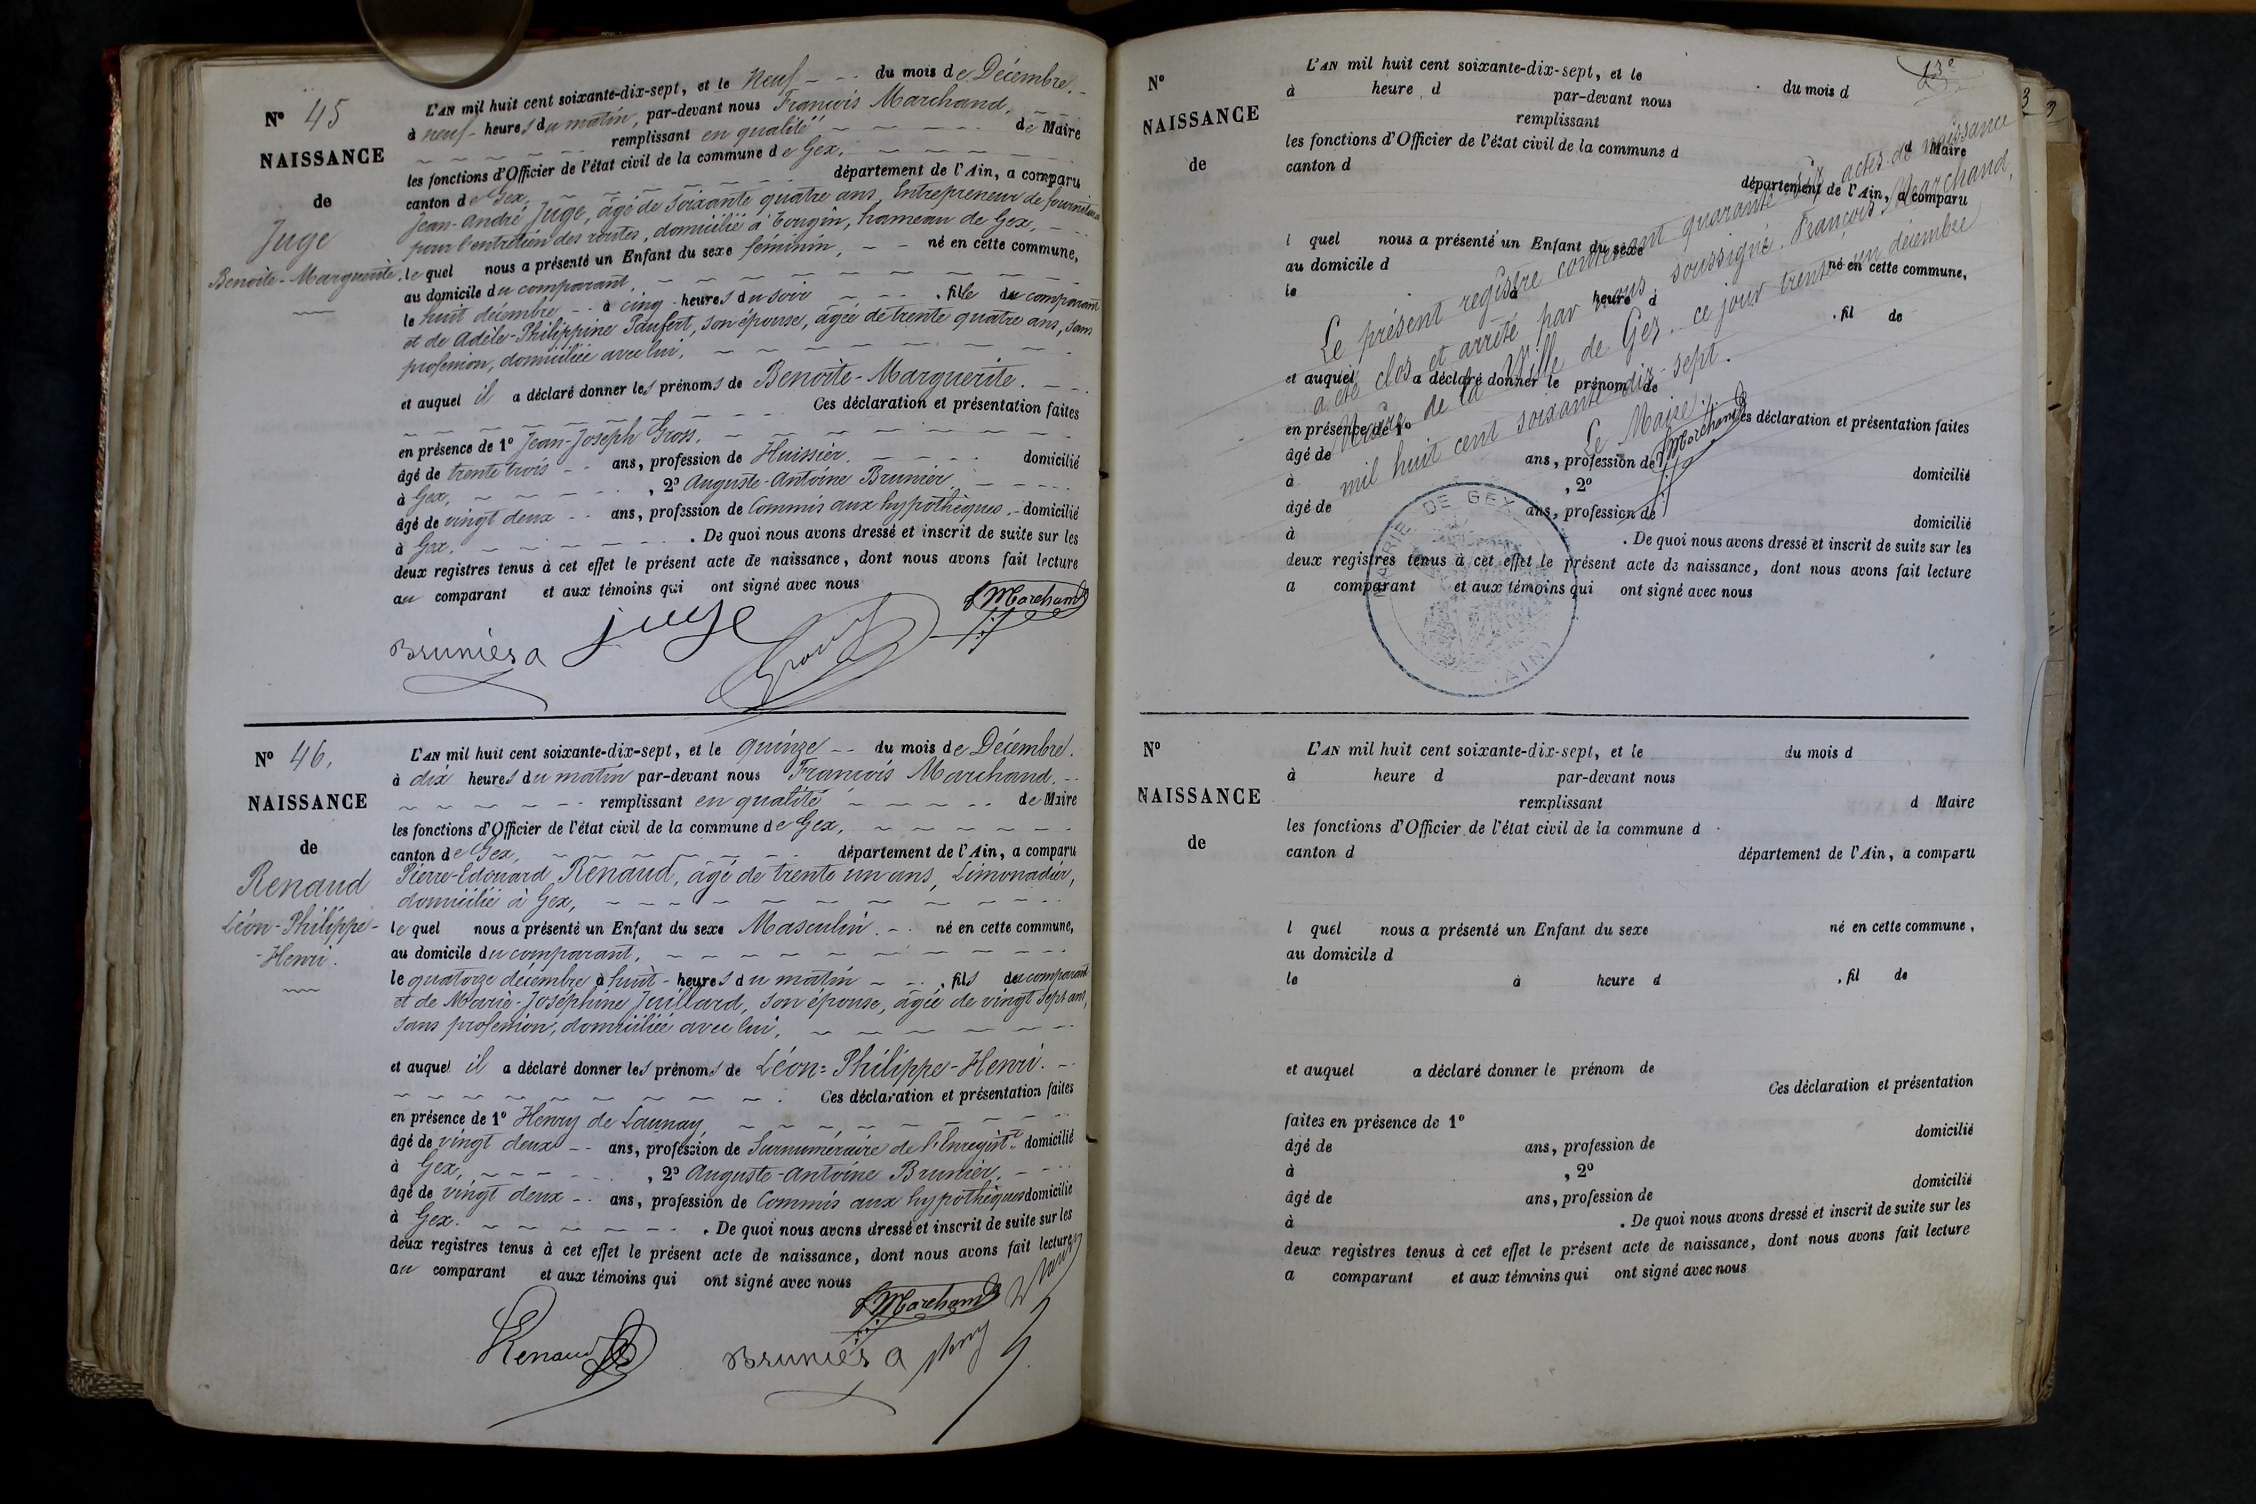 N° 45
NAISSANCE
de
Juge
Benoîte-Marguerite.
L'AN mil huit cent soixante-dix-sept, et le Neuf du mois de Décembre.
à neuf heures du matin, par-devant nous François Marchand,
remplissant en qualité de Maire
les fonctions d'Officier de l'état civil de la commune de Gex,
canton de Gex, département de l'Ain, a comparu
Jean-André Juge, âgé de soixante quatre ans, Entrepreneur de fournitures
pour l'entretien des routes, domicilié à Tougin, hameau de Gex,
le quel nous a présenté un Enfant du sexe féminin, né en cette commune,
au domicile du comparant,
le huit décembre à cinq heures du soir, fille du comparant
et de Adèle-Philippine Paufert, son épouse, âgée de trente quatre ans, sans
profession, domiciliée avec lui,
et auquel il a déclaré donner les prénoms de Benoîte-Marguerite.
Ces déclaration et présentation faites
en présence de 1° Jean-Joseph Gross,
âgé de trente trois ans, profession de Huissier domicilié
à Gex, , 2° Auguste-Antoine Brunier,
âgé de vingt deux ans, profession de Commis aux hypothèques domicilié
à Gex. . De quoi nous avons dressé et inscrit de suite sur les
deux registres tenus à cet effet le présent acte de naissance, dont nous avons fait lecture
au comparant et aux témoins qui ont signé avec nous
Marchand
Brunier a juge Gross
N° 46.
NAISSANCE
de
Renaud
Léon-Philippe-
-Henri.
L'AN mil huit cent soixante-dix-sept, et le quinze du mois de Décembre.
à dix heures du matin par-devant nous François Marchand.
remplissant en qualité de Maire
les fonctions d'Officier de l'état civil de la commune de Gex,
canton de Gex, département de l'Ain, a comparu
Pierre-Edouard Renaud, âgé de trente un ans, Limonadier,
domicilié à Gex,
le quel nous a présenté un Enfant du sexe Masculin. né en cette commune,
au domicile du comparant,
le quatorze décembre à huit heures du matin, fils du comparant
et de Marie-Joséphine Juillard, son épouse, âgée de vingt sept ans,
sans profession, domiciliée avec lui,
et auquel il a déclaré donner les prénoms de Léon-Philippe-Henri.
Ces déclaration et présentation faites
en présence de 1° Henry de Launay,
âgé de vingt deux ans, profession de Surnuméraire de l'Enregistt domicilié
à Gex, , 2° Auguste-Antoine Brunier,
âgé de vingt deux ans, profession de Commis aux hypothèques domicilié
à Gex. . De quoi nous avons dressé et inscrit de suite sur les
deux registres tenus à cet effet le présent acte de naissance, dont nous avons fait lecture
au comparant et aux témoins qui ont signé avec nous
Marchand
Renaud Brunier a
N°
NAISSANCE
de
L'AN mil huit cent soixante-dix-sept, et le du mois d
à heure d par-devant nous
remplissant d Maire
les fonctions d'Officier de l'état civil de la commune d
canton d département de l'Ain, a comparu
l quel nous a présenté un Enfant du sexe né en cette commune,
au domicile d
le à heure d , fil de
et auquel a déclaré donner le prénom de
Ces déclaration et présentation faites
en présence de 1°
âgé de ans, profession de domicilié
à , 2°
âgé de ans, profession de domicilié
à . De quoi nous avons dressé et inscrit de suite sur les
deux registres tenus à cet effet le présent acte de naissance, dont nous avons fait lecture
a comparant et aux témoins qui ont signé avec nous
Le présent registre contenant quarante six actes de naissance
a été clos et arrêté par nous, soussigné, François Marchand,
Maire de la Ville de Gex, ce jour trente un décembre
mil huit cent soixante dix-sept.
Le Maire.
Marchand
MAIRIE DE GEX
(AIN)
N°
NAISSANCE
de
L'AN mil huit cent soixante-dix-sept, et le du mois d
à heure d par-devant nous
remplissant d Maire
les fonctions d'Officier de l'état civil de la commune d
canton d département de l'Ain, a comparu
l quel nous a présenté un Enfant du sexe né en cette commune,
au domicile d
le à heure d , fil de
et auquel a déclaré donner le prénom de
Ces déclaration et présentation
faites en présence de 1°
âgé de ans, profession de domicilié
à , 2°
âgé de ans, profession de domicilié
à . De quoi nous avons dressé et inscrit de suite sur les
deux registres tenus à cet effet le présent acte de naissance, dont nous avons fait lecture
a comparant et aux témoins qui ont signé avec nous